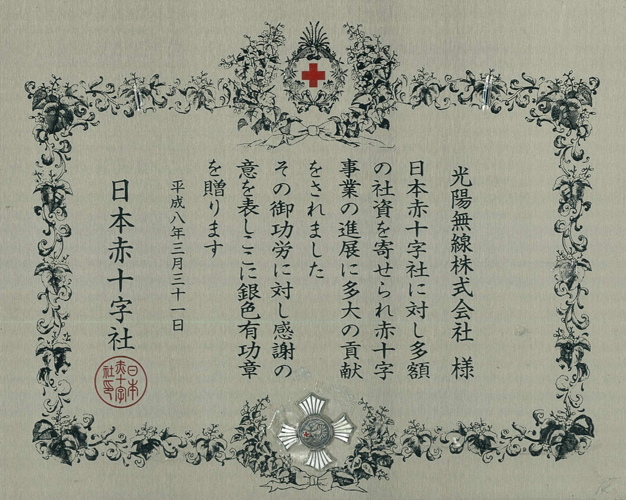 光陽無線株式会社 様
日本赤十字社に対し多額
の社資を寄せられ赤十字
事業の進展に多大の貢献
をされました
その御功労に対し感謝の
意を表しここに銀色有功章
を贈ります
平成八年三月三十一日
日本赤十字社
日本
赤十字
社印